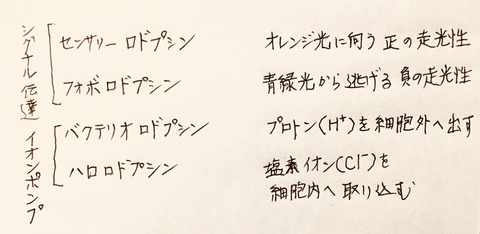 シグナル伝達
センサリー ロドプシン オレンジ光に向う 正の走光性
フォボロドプシン 青緑光から逃げる 負の走光性
イオンポンプ
バクテリオロドプシン プロトン(H⁺)を細胞外へ出す
ハロロドプシン 塩素イオン(Cl⁻)を
細胞内へ取り込む